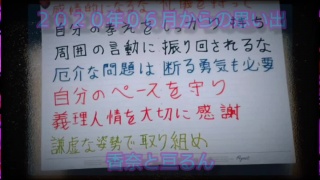 2020年05月からの思い出
自分の考えをしっかり持ち
周囲の言動に振り回されるな
厄介な問題は断る勇気も必要
自分のペースを守り
義理人情を大切に感謝
謙虚な姿勢で取り組め
香奈と豆ろん